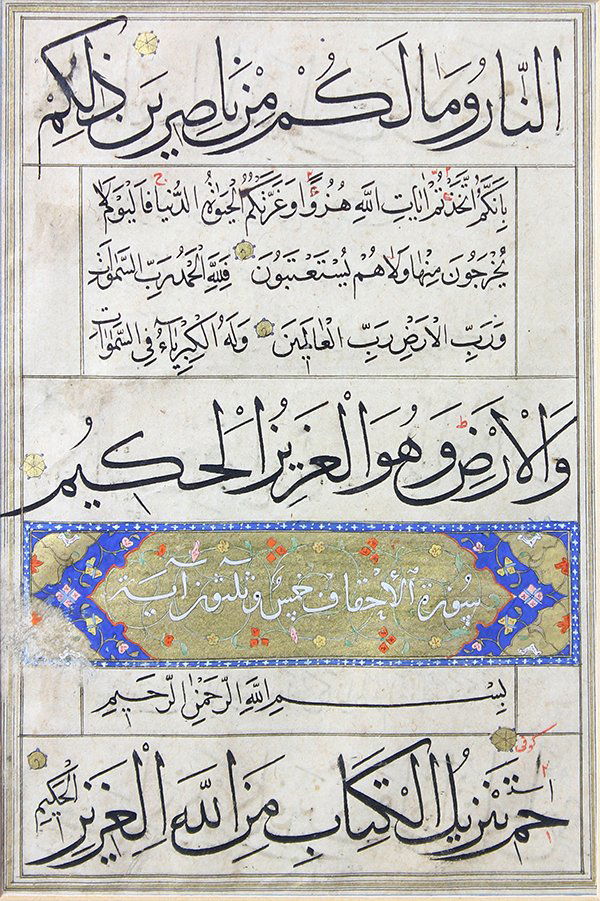 النَّارُ وَمَا لَكُمْ مِنْ نَاصِرِينَ ذَلِكُمْ
بِأَنَّكُمُ اتَّخَذْتُمْ اٰيَاتِ اللّٰهِ هُزُوًا وَغَرَّتْكُمُ الْحَيٰوةُ الدُّنْيَا فَالْيَوْمَ لَا
يُخْرَجُونَ مِنْهَا وَلَا هُمْ يُسْتَعْتَبُونَ فَلِلّٰهِ الْحَمْدُ رَبِّ السَّمٰوَاتِ
وَرَبِّ الْاَرْضِ رَبِّ الْعَالَمِينَ وَلَهُ الْكِبْرِيَآءُ فِي السَّمٰوَاتِ
وَالْاَرْضِ وَهُوَ الْعَزِيزُ الْحَكِيمُ
سورة الاحقاف خمس وثلثون اية
بِسْمِ اللّٰهِ الرَّحْمٰنِ الرَّحِيمِ
كوفى
حم تَنْزِيلُ الْكِتَابِ مِنَ اللّٰهِ الْعَزِيزِ الْحَكِيمِ